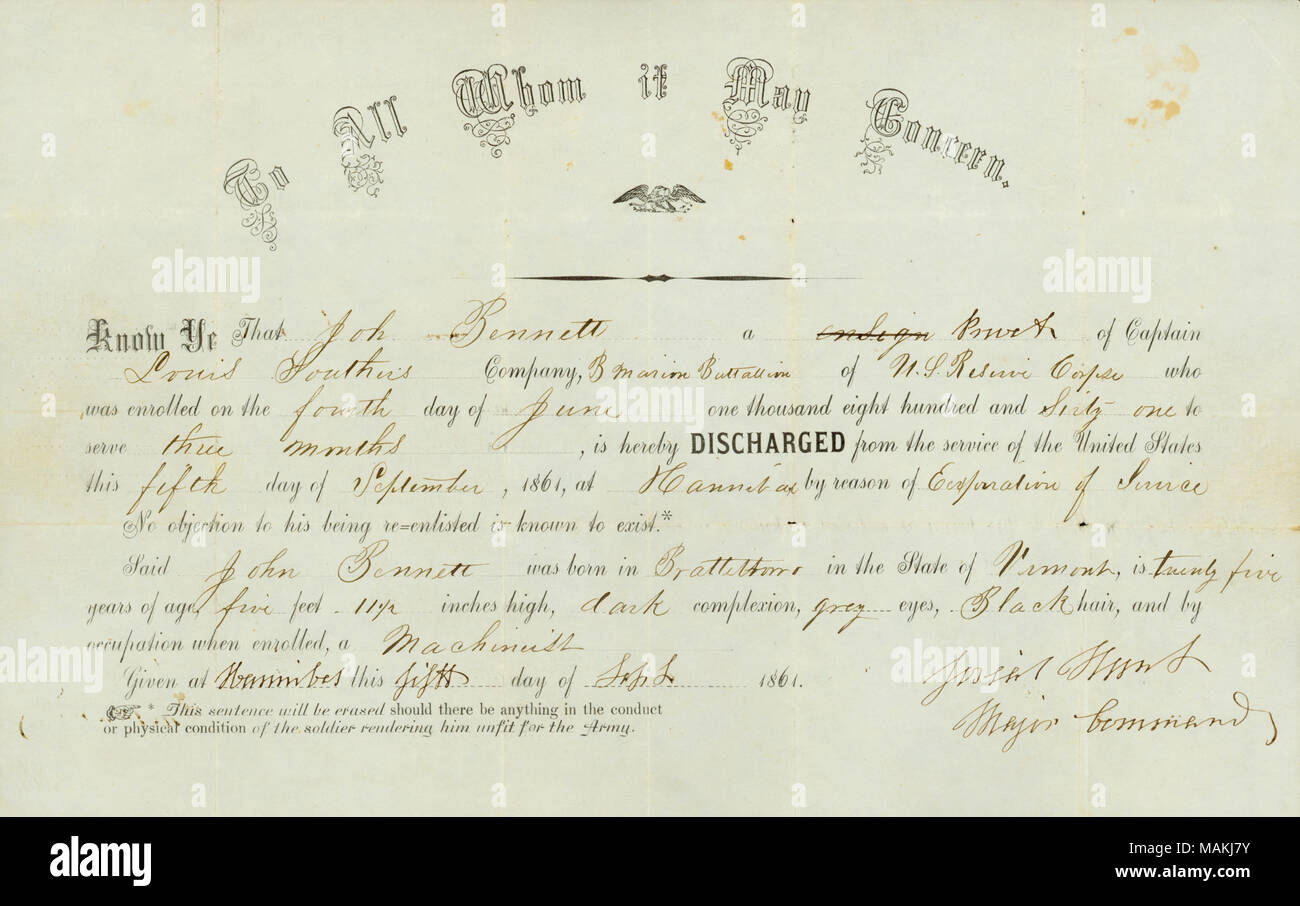 To All Whom it May Concern.
Know Ye That Joh Bennett a ensign Privet of Captain
Louis Southers Company, B Marion Battallion of U.S. Reserve Corpse who
was enrolled on the fourth day of June one thousand eight hundred and Sixty one to
serve three months, is hereby DISCHARGED from the service of the United States
this fifth day of September, 1861, at Hannibal by reason of Expiration of Service
No objection to his being re=enlisted is known to exist.*
Said John Bennett was born in Brattelboro in the State of Vimont, is twenty five
years of age, five feet 11 1/2 inches high, dark complexion, grey eyes, Black hair, and by
occupation when enrolled, a Machineist
Given at Hannibal this fifth day of Sept 1861.
Josiah Hunt
Major Command
* This sentence will be erased should there be anything in the conduct
or physical condition of the soldier rendering him unfit for the Army.
alamy
Image ID: MAKJ7Y
www.alamy.com